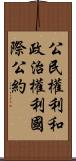 公民權利和
政治權利國
際公約